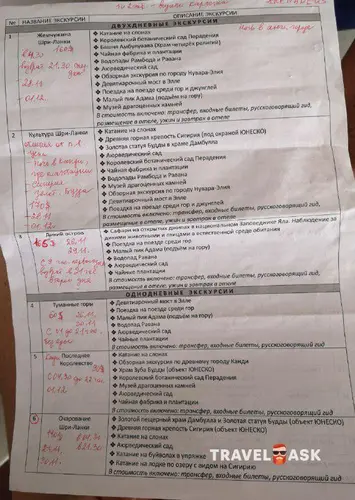 №
НАЗВАНИЕ ЭКСКУРСИИ
ОПИСАНИЕ ЭКСКУРСИИ
ДВУХДНЕВНЫЕ ЭКСКУРСИИ
1
Жемчужина
Шри-Ланки
❖ Катание на слонах
❖ Королевский ботанический сад Перадения
❖ Башня Амбулувава (Храм четырёх религий)
❖ Чайная фабрика и плантации
❖ Водопады Рамбода и Равана
❖ Аюрведический сад
❖ Обзорная экскурсия по городу Нувара-Элия
❖ Девятиарочный мост в Элле
❖ Поездка на поезде среди гор и джунглей
❖ Малый пик Адама (подъём на гору)
❖ Музей драгоценных камней
В стоимость включены: трансфер, входные билеты, русскоговорящий гид,
размещение в отеле, ужин и завтрак в отеле
28.11
01.12.
2
Культура Шри-Ланки
❖ Катание на слонах
❖ Древняя горная крепость Сигирия (под охраной ЮНЕСКО)
❖ Золотая статуя Будды в храме Дамбулла
❖ Аюрведический сад
❖ Королевский ботанический сад Перадения
❖ Чайная фабрика и плантации
❖ Водопады Рамбода и Равана
❖ Музей драгоценных камней
❖ Обзорная экскурсия по городу Нувара-Элия
❖ Девятиарочный мост в Элле
❖ Поездка на поезде среди гор и джунглей
В стоимость включены: трансфер, входные билеты, русскоговорящий гид,
размещение в отеле, ужин и завтрак в отеле
170$
28.11
01.12
3
остров
❖ Сафари на открытых джипах в Национальном Заповеднике Яла. Наблюдение за
дикими животными и птицами в естественной среде обитания
❖ Поездка на поезде среди гор
❖ Малый пик Адама (подъём на гору)
❖ Водопад Равана
❖ Аюрведический сад
❖ Чайные плантации
В стоимость включены: трансфер, входные билеты, русскоговорящий гид,
размещение в отеле, ужин и завтрак в отеле
165$
28.11
ОДНОДНЕВНЫЕ ЭКСКУРСИИ
4
Туманные горы
❖ Девятиарочный мост в Элле
❖ Поездка на поезде среди гор
❖ Малый пик Адама (подъём на гору)
❖ Водопад Равана
❖ Аюрведический сад
❖ Чайные плантации
В стоимость включены: трансфер, входные билеты, русскоговорящий гид
5
Последнее
Королевство
❖ Катание на слонах
❖ Обзорная экскурсия по древнему городу Канди
❖ Храм Зуба Будды (объект ЮНЕСКО)
❖ Королевский ботанический сад Перадения
❖ Музей драгоценных камней
❖ Чайная фабрика и плантации
В стоимость включены: трансфер, входные билеты, русскоговорящий гид
01.12
6
Очарование
Шри-Ланки
❖ Золотой пещерный храм Дамбулла и Золотая статуя Будды (объект ЮНЕСКО)
❖ Древняя горная крепость Сигирия (объект ЮНЕСКО)
❖ Катание на слонах
❖ Аюрведический сад
❖ Катание на буйволах в упряжке
❖ Катание на лодке по озеру с видом на Сигирию
В стоимость включены: трансфер, входные билеты, русскоговорящий гид
30.11.
TRAVEL ASK